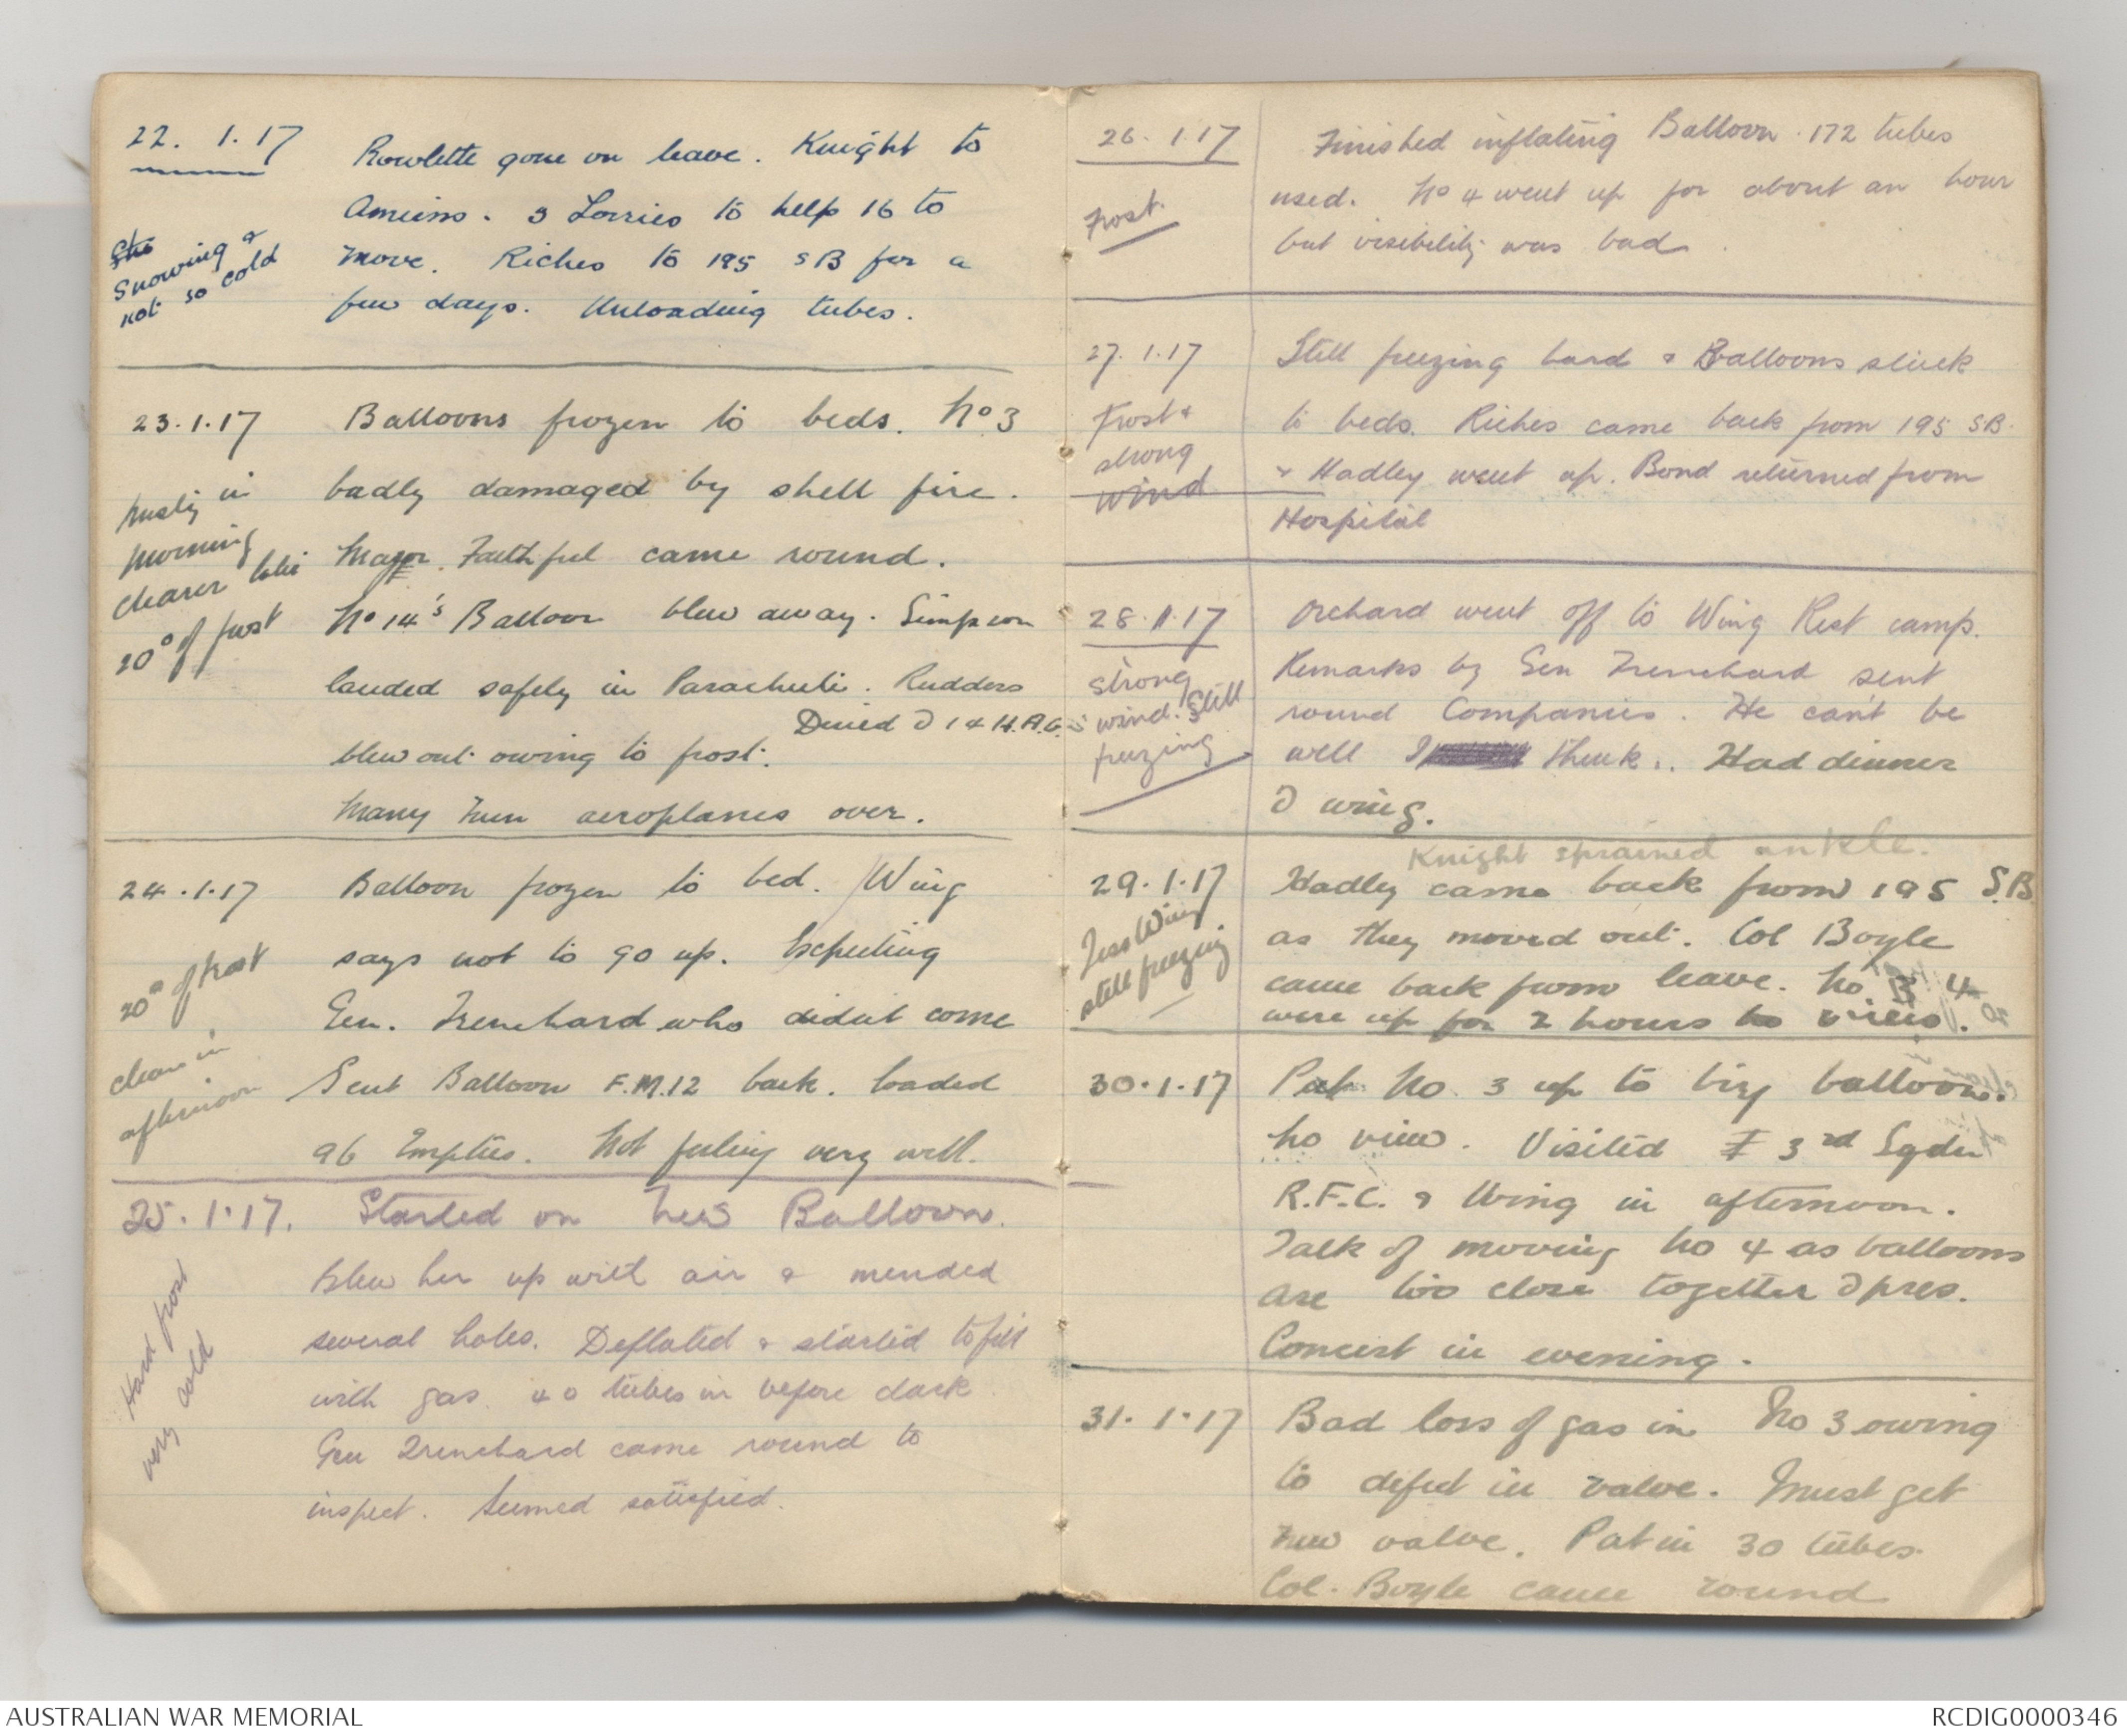 22. 1. 17
Rowlette gone on leave. Knight to
Amiens. 3 Lorries to help 16 to
move. Riches to 195 SB for a
few days. Unloading tubes.
Snowing &
not so cold
23.1.17
Balloons frozen to beds. No 3
badly damaged by shell fire.
Major. Faithful came round.
No 14's Balloon blew away. Simpson
landed safely in Parachute. Rudders
Dined @ 14 H.A.G.
blew out owing to frost.
Many Hun aeroplanes over.
Misty in
morning
clearer later
20° of frost
24.1.17
Balloon frozen to bed. Wing
says not to go up. Expecting
Gen. Trenchard who didn't come
Sent Balloon F.M.12 back. loaded
96 Empties. Not feeling very well.
20° of frost
clear in
afternoon
25.1.17.
Started on new Balloon.
Blew her up with air & mended
several holes. Deflated & started to fill
with gas. 40 tubes in before dark
Gen Trenchard came round to
inspect. Seemed satisfied.
Hard frost
very cold
26.1.17
Frost.
Finished inflating Balloon. 172 tubes
used. No 4 went up for about an hour
but visibility was bad.
27.1.17
Frost &
strong
wind
Still freezing hard & Balloons stuck
to beds. Riches came back from 195 SB.
& Hadley went up. Bond returned from
Hospital
28.1.17
strong
wind. Still
freezing
Orchard went off to Wing Rest camp.
Remarks by Gen Trenchard sent
round Companies. He can't be
well I think.. Had dinner
@ wing.
Knight sprained ankle.
29.1.17
Less Wind
still freezing
Hadley came back from 195 S.B
as they moved out. Col Boyle
came back from leave. No 3 4
were up for 2 hours no view.
30.1.17
Put No 3 up to try balloon.
No view. Visited 3rd Sqdn
R.F.C. & Wing in afternoon.
Talk of moving No 4 as balloons
are too close together @ pres.
Concert in evening.
31.1.17
Bad loss of gas in No 3 owing
to defect in valve. Must get
new valve. Put in 30 tubes.
Col. Boyle came round
AUSTRALIAN WAR MEMORIAL
RCDIG0000346